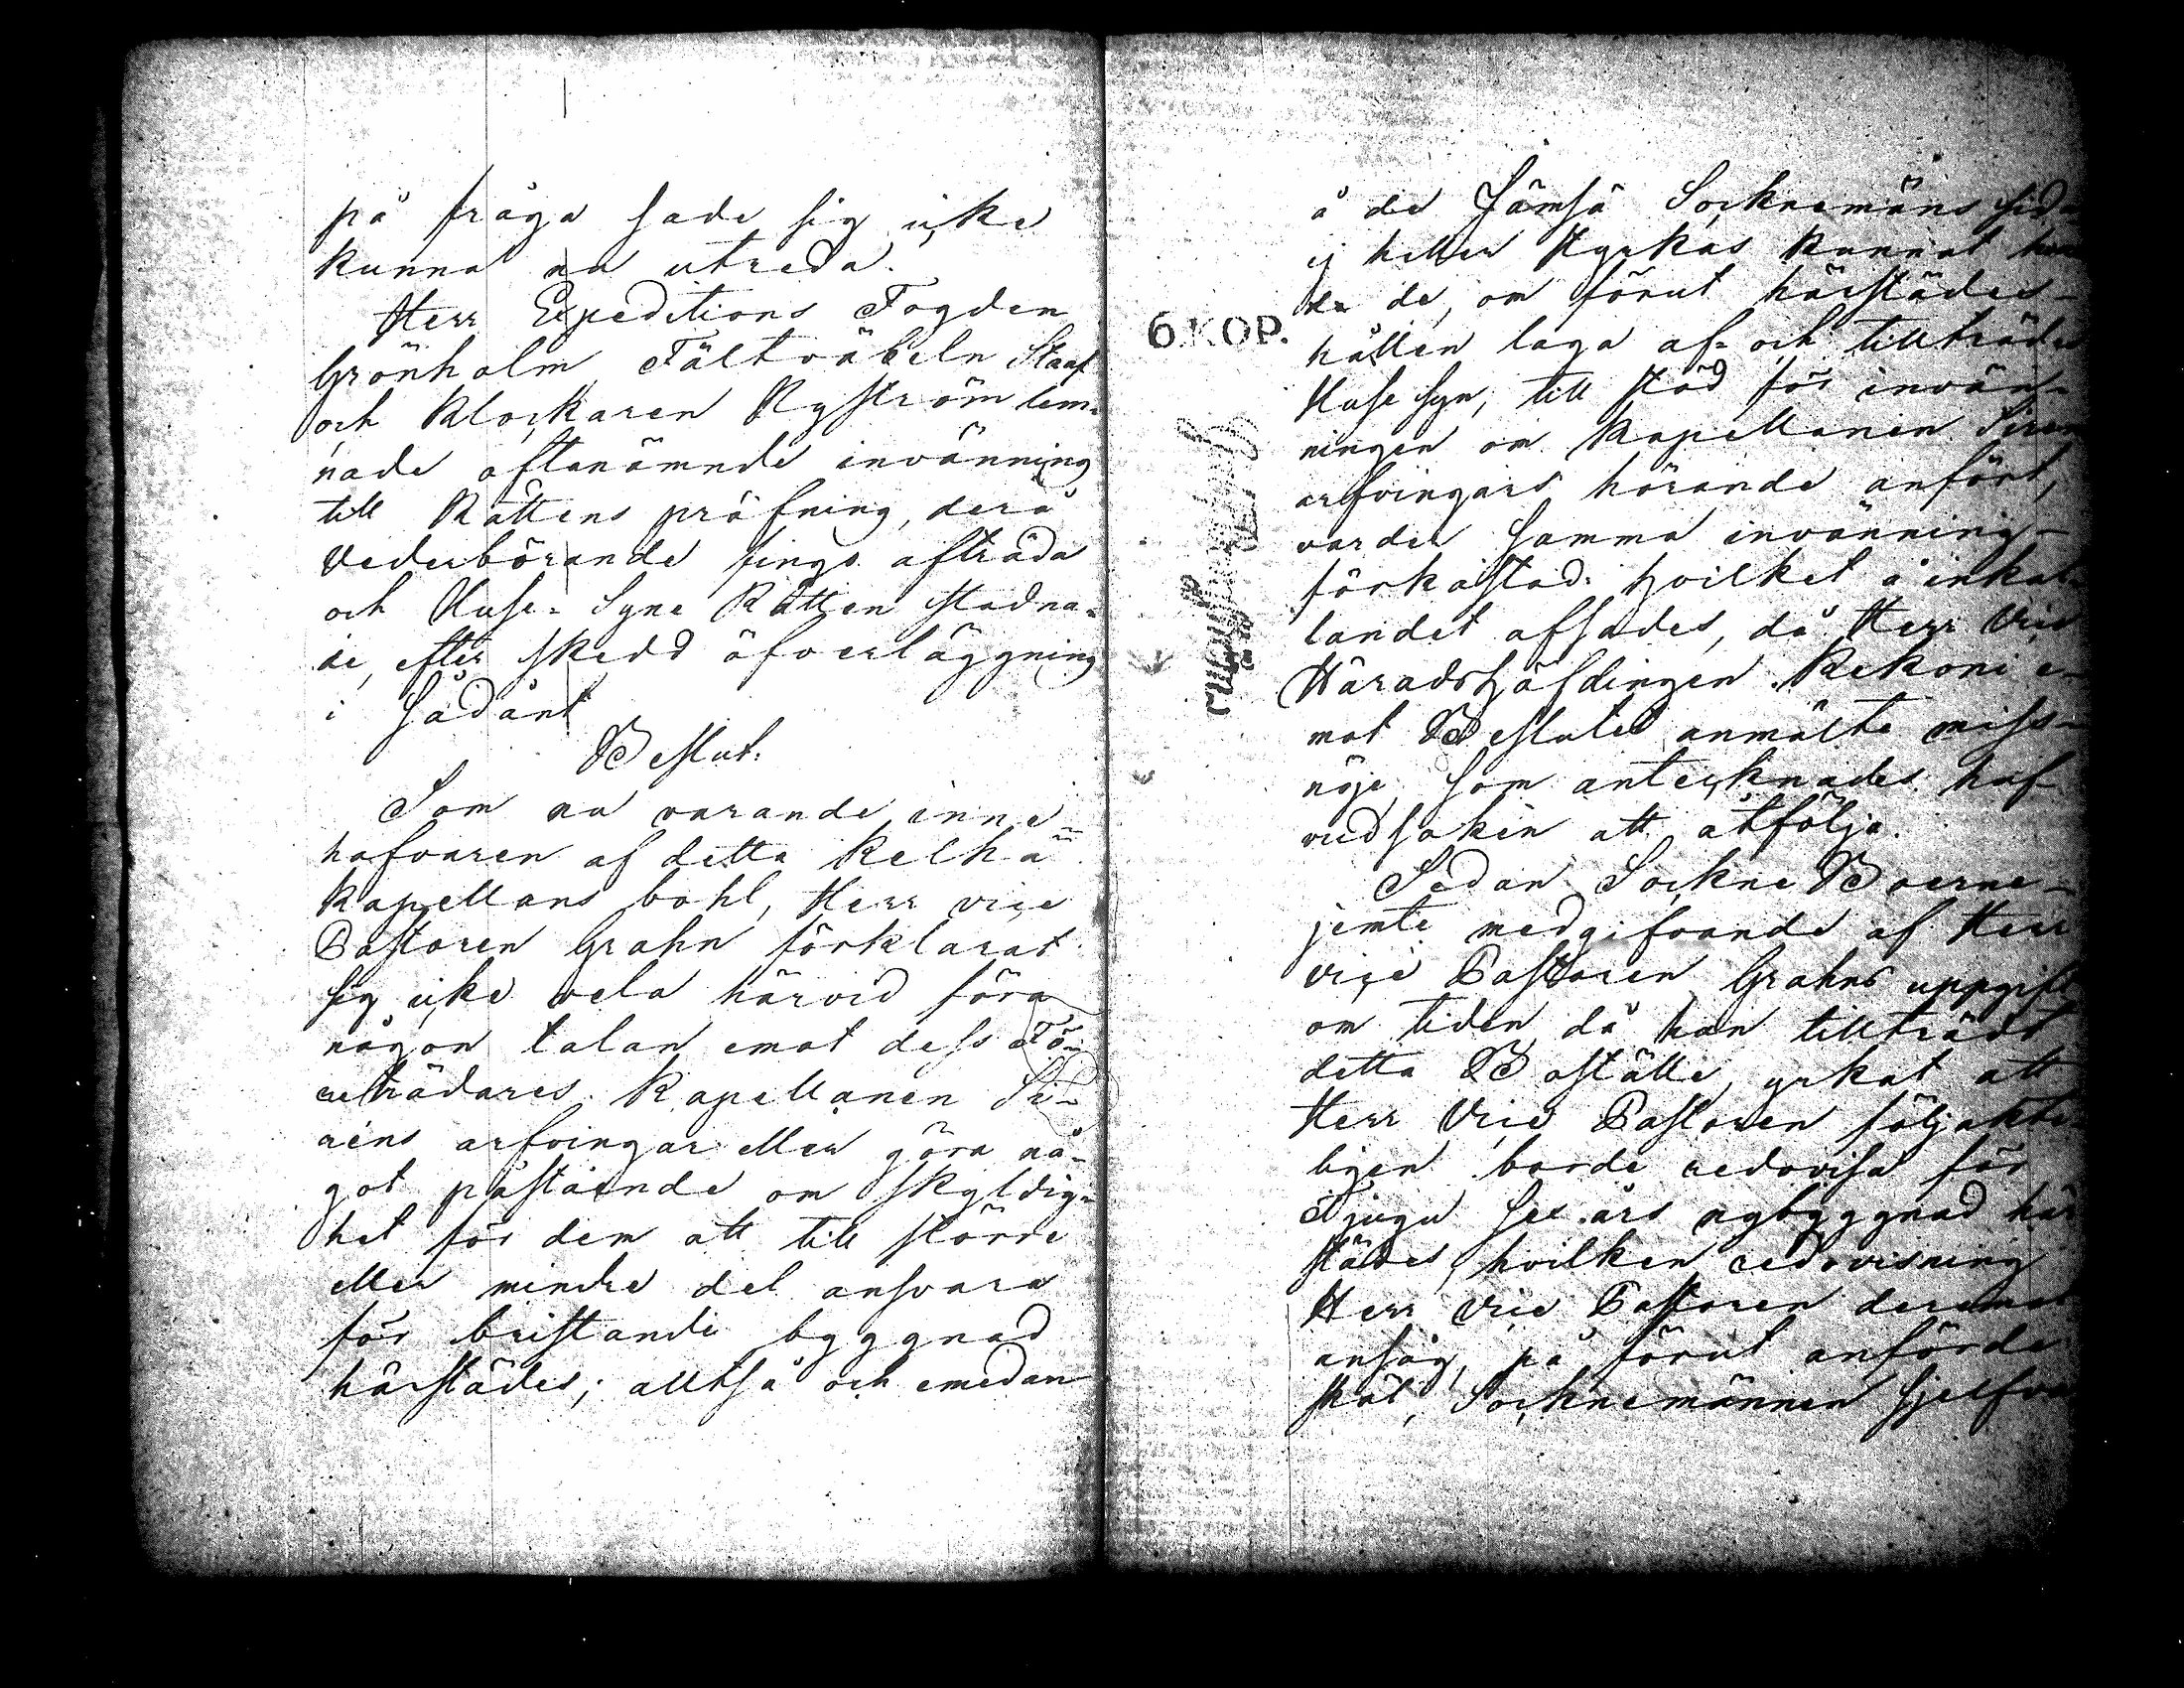 på fråga sade sig icke
kunna nu utreda.
Herr Expeditions Fogden
Grönholm Fältväbeln Staaf
och Klockaren Nyström lem-
nade oftanämnde invänning
till Rättens pröfning, derå
Vederbörande fingo afträda
och Huse-Syne Rätten stadna-
de, efter skedd öfverläggning
i sådant
Beslut:
Som nu varande inne-
hafvaren af detta Kelhä
Kapellans bohl, Herr vice
Pastoren Grahn förklarat
sig icke vela härvid föra
någon talan emot dess Fö-
reträdares Kapellanen Si-
rens arfvingar eller göra nå-
got påstående om skyldig-
het för dem att till större
eller mindre del ansvara
för bristande byggnad
härstädes; alltså och emedan
å de Jämsä Socknemäns sida
ej heller Kyrkas kunnat
de, om förut härstädes
6 KOP.
hållen laga af- och tillträdes
Huse syn, till stöd för invän-
ningen om Kapellanen Sirens
arfvingars hörande anfört,
varder samma invänning
förkastad. hvilket å inkal-
landet afsades, då Herr Vice
Häradshöfdingen Kekoni e-
mot Beslutet anmälte miss-
nöje, som antecknades huf-
vudsaken att åtfölja.
Sedan Sockne Boerne
jemte medgifvande af Herr
vice Pastoren Grahns uppgift
om tiden då han tillträdt
detta Boställe, yrkat att
Herr Vice Pastoren följakte-
ligen borde redovisa för
Tjugu sex års nybyggnad här
städes, hvilken redovisning
Herr Vice Pastoren deremot
ansåg, på förut anförde
skäl, Socknemännen sjelfva